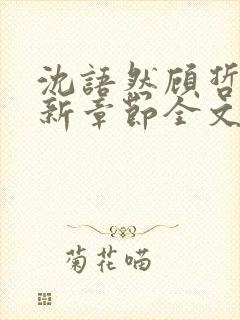 沈語然顾哲
新章節全文
菊花喵